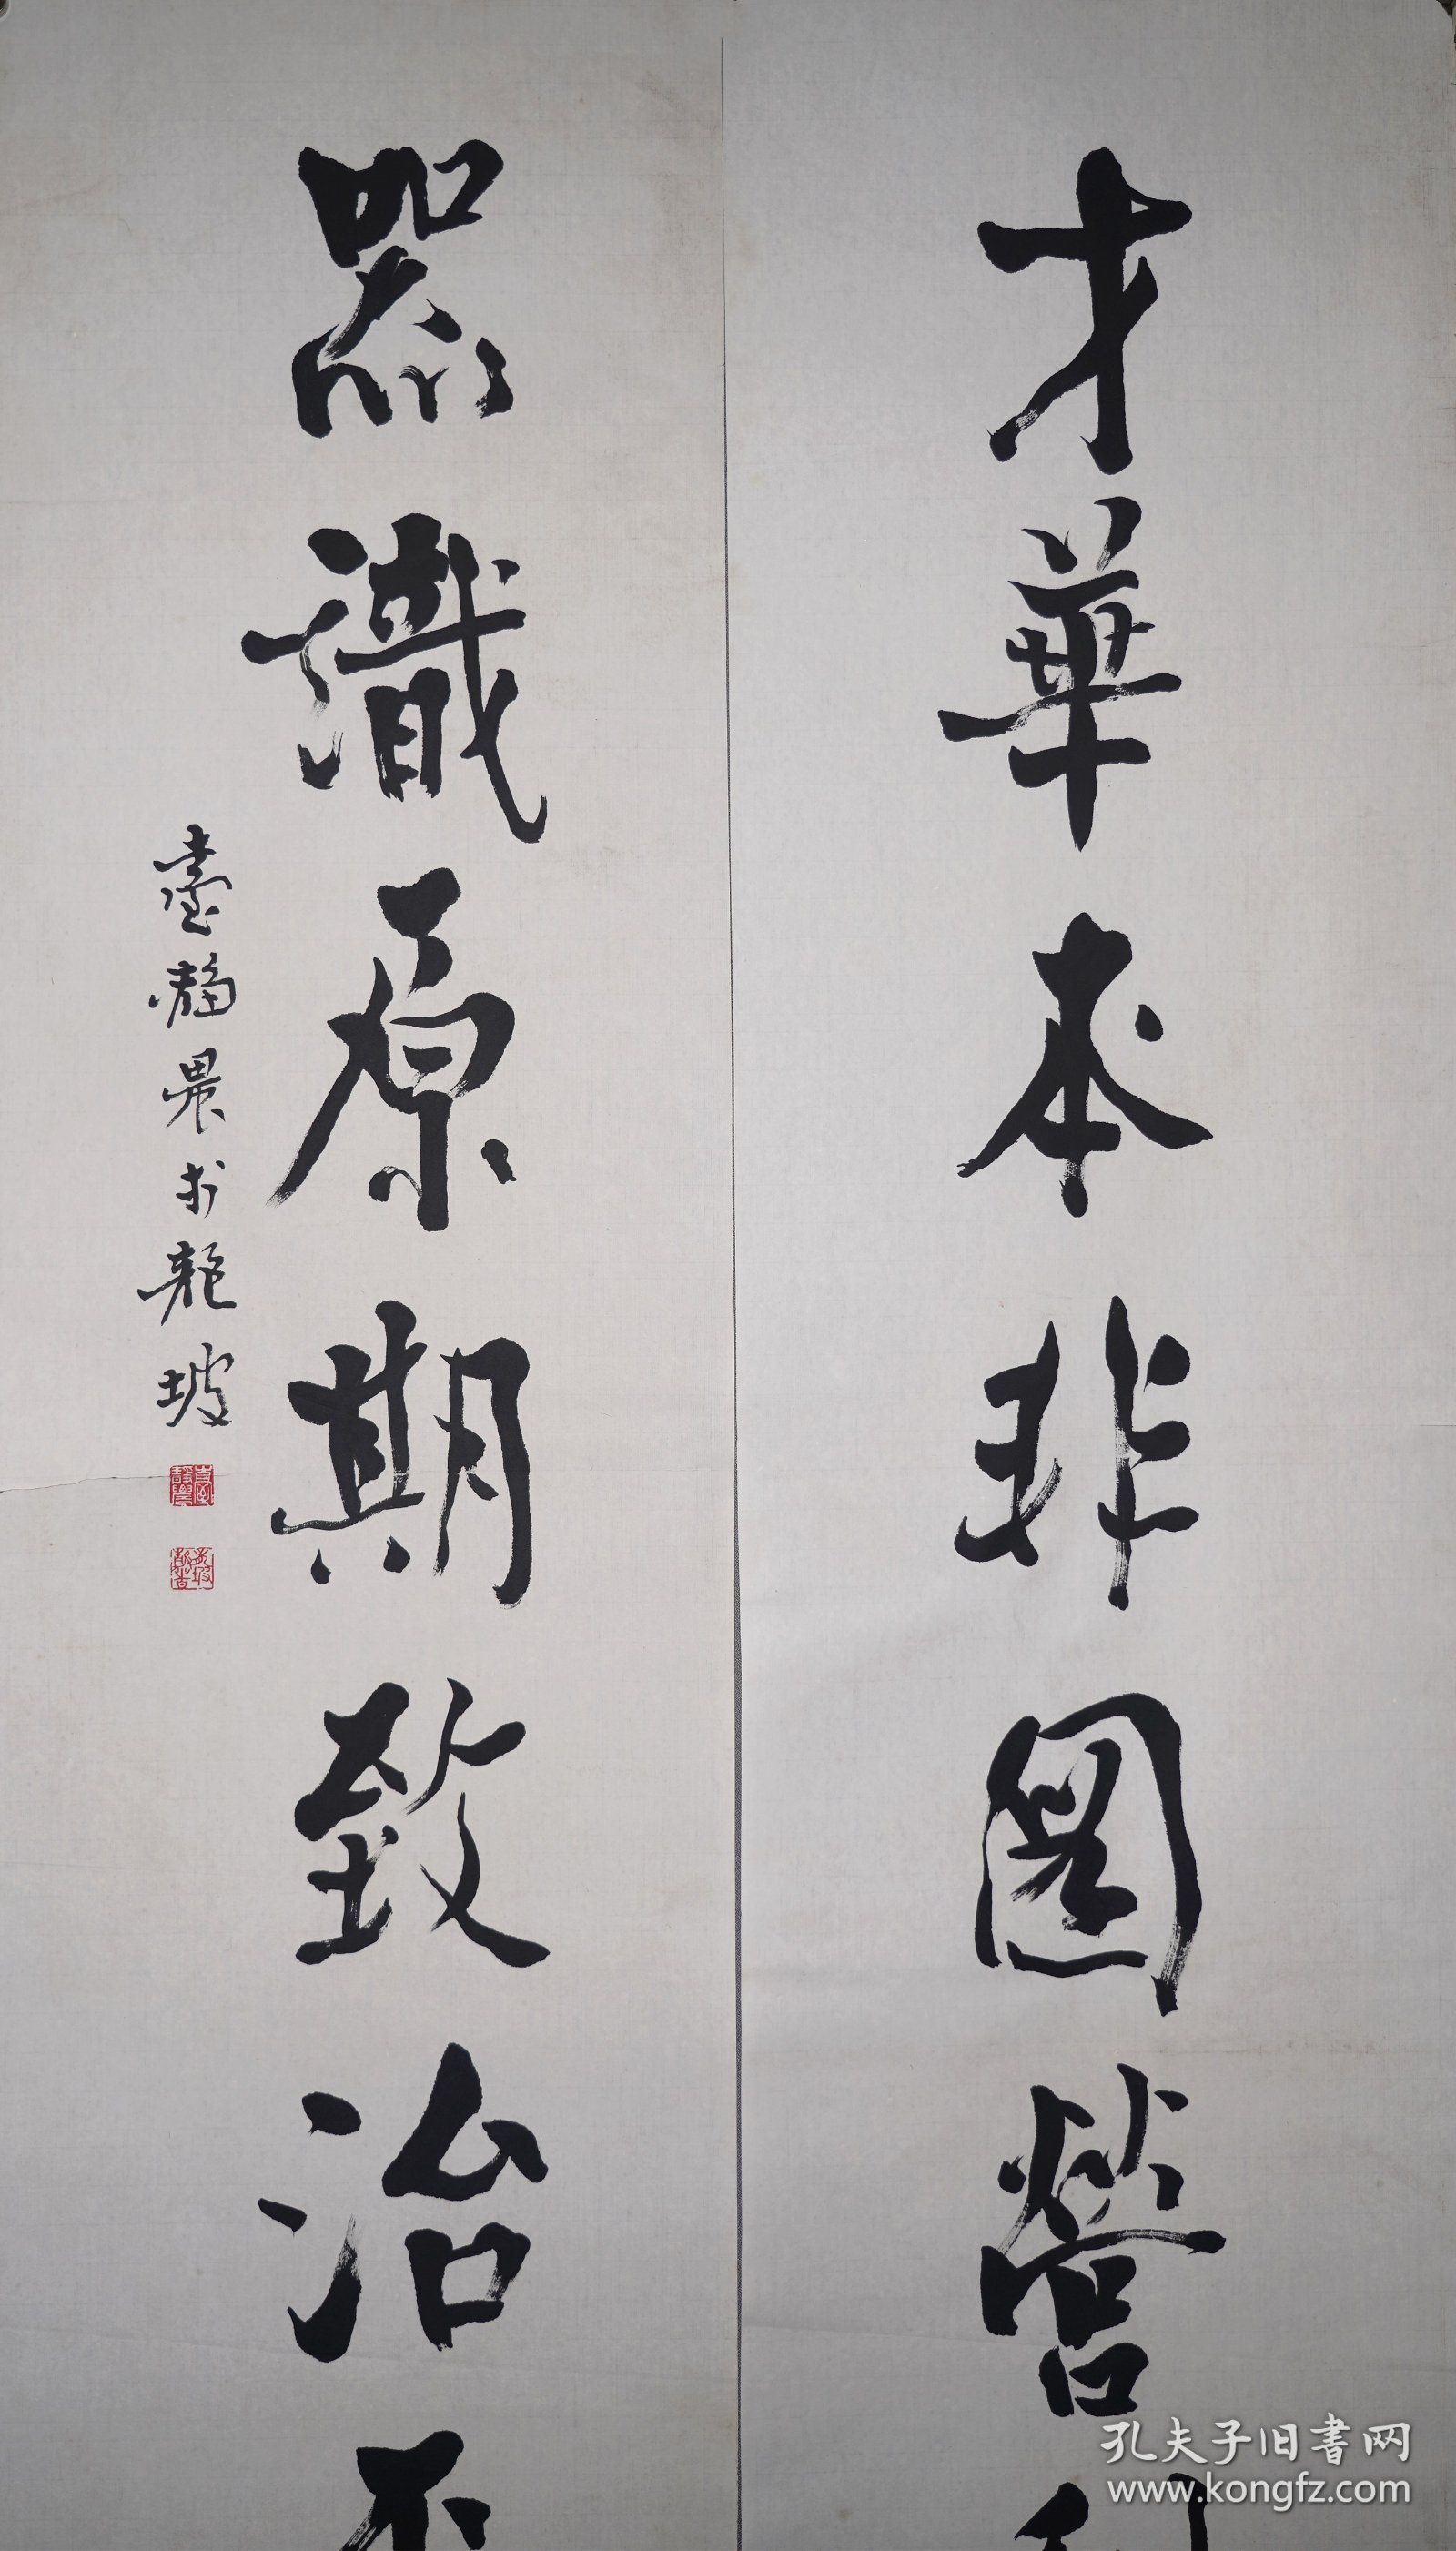 才華本非圖營
器識原期致治
臺靜農於龍坡
臺靜農
孔夫子旧書网
www.kongfz.com